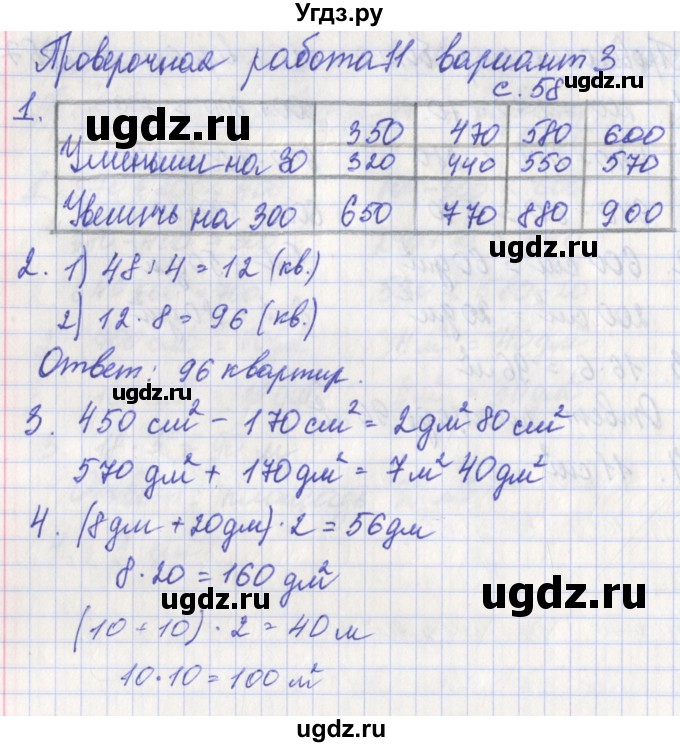 Угдз.ру
Проверочная работа 11 вариант 3
с. 58
1.
350 470 580 600
Уменьши на 30 320 440 550 570
Увеличь на 300 650 770 880 900
ugdz.ru
ugdz.ru
2. 1) 48:4=12 (кв.)
2) 12·8=96 (кв.)
Ответ: 96 квартир.
ugdz.ru
3. 450 см² - 170 см² = 2дм² 80см²
570 дм² + 170дм² = 7м² 40дм²
4. (8дм + 20дм)·2=56дм
8·20=160 дм²
ugdz.ru
ugdz.ru
(10+10)·2=40м
10·10=100 м²
ugdz.ru
ugdz.ru